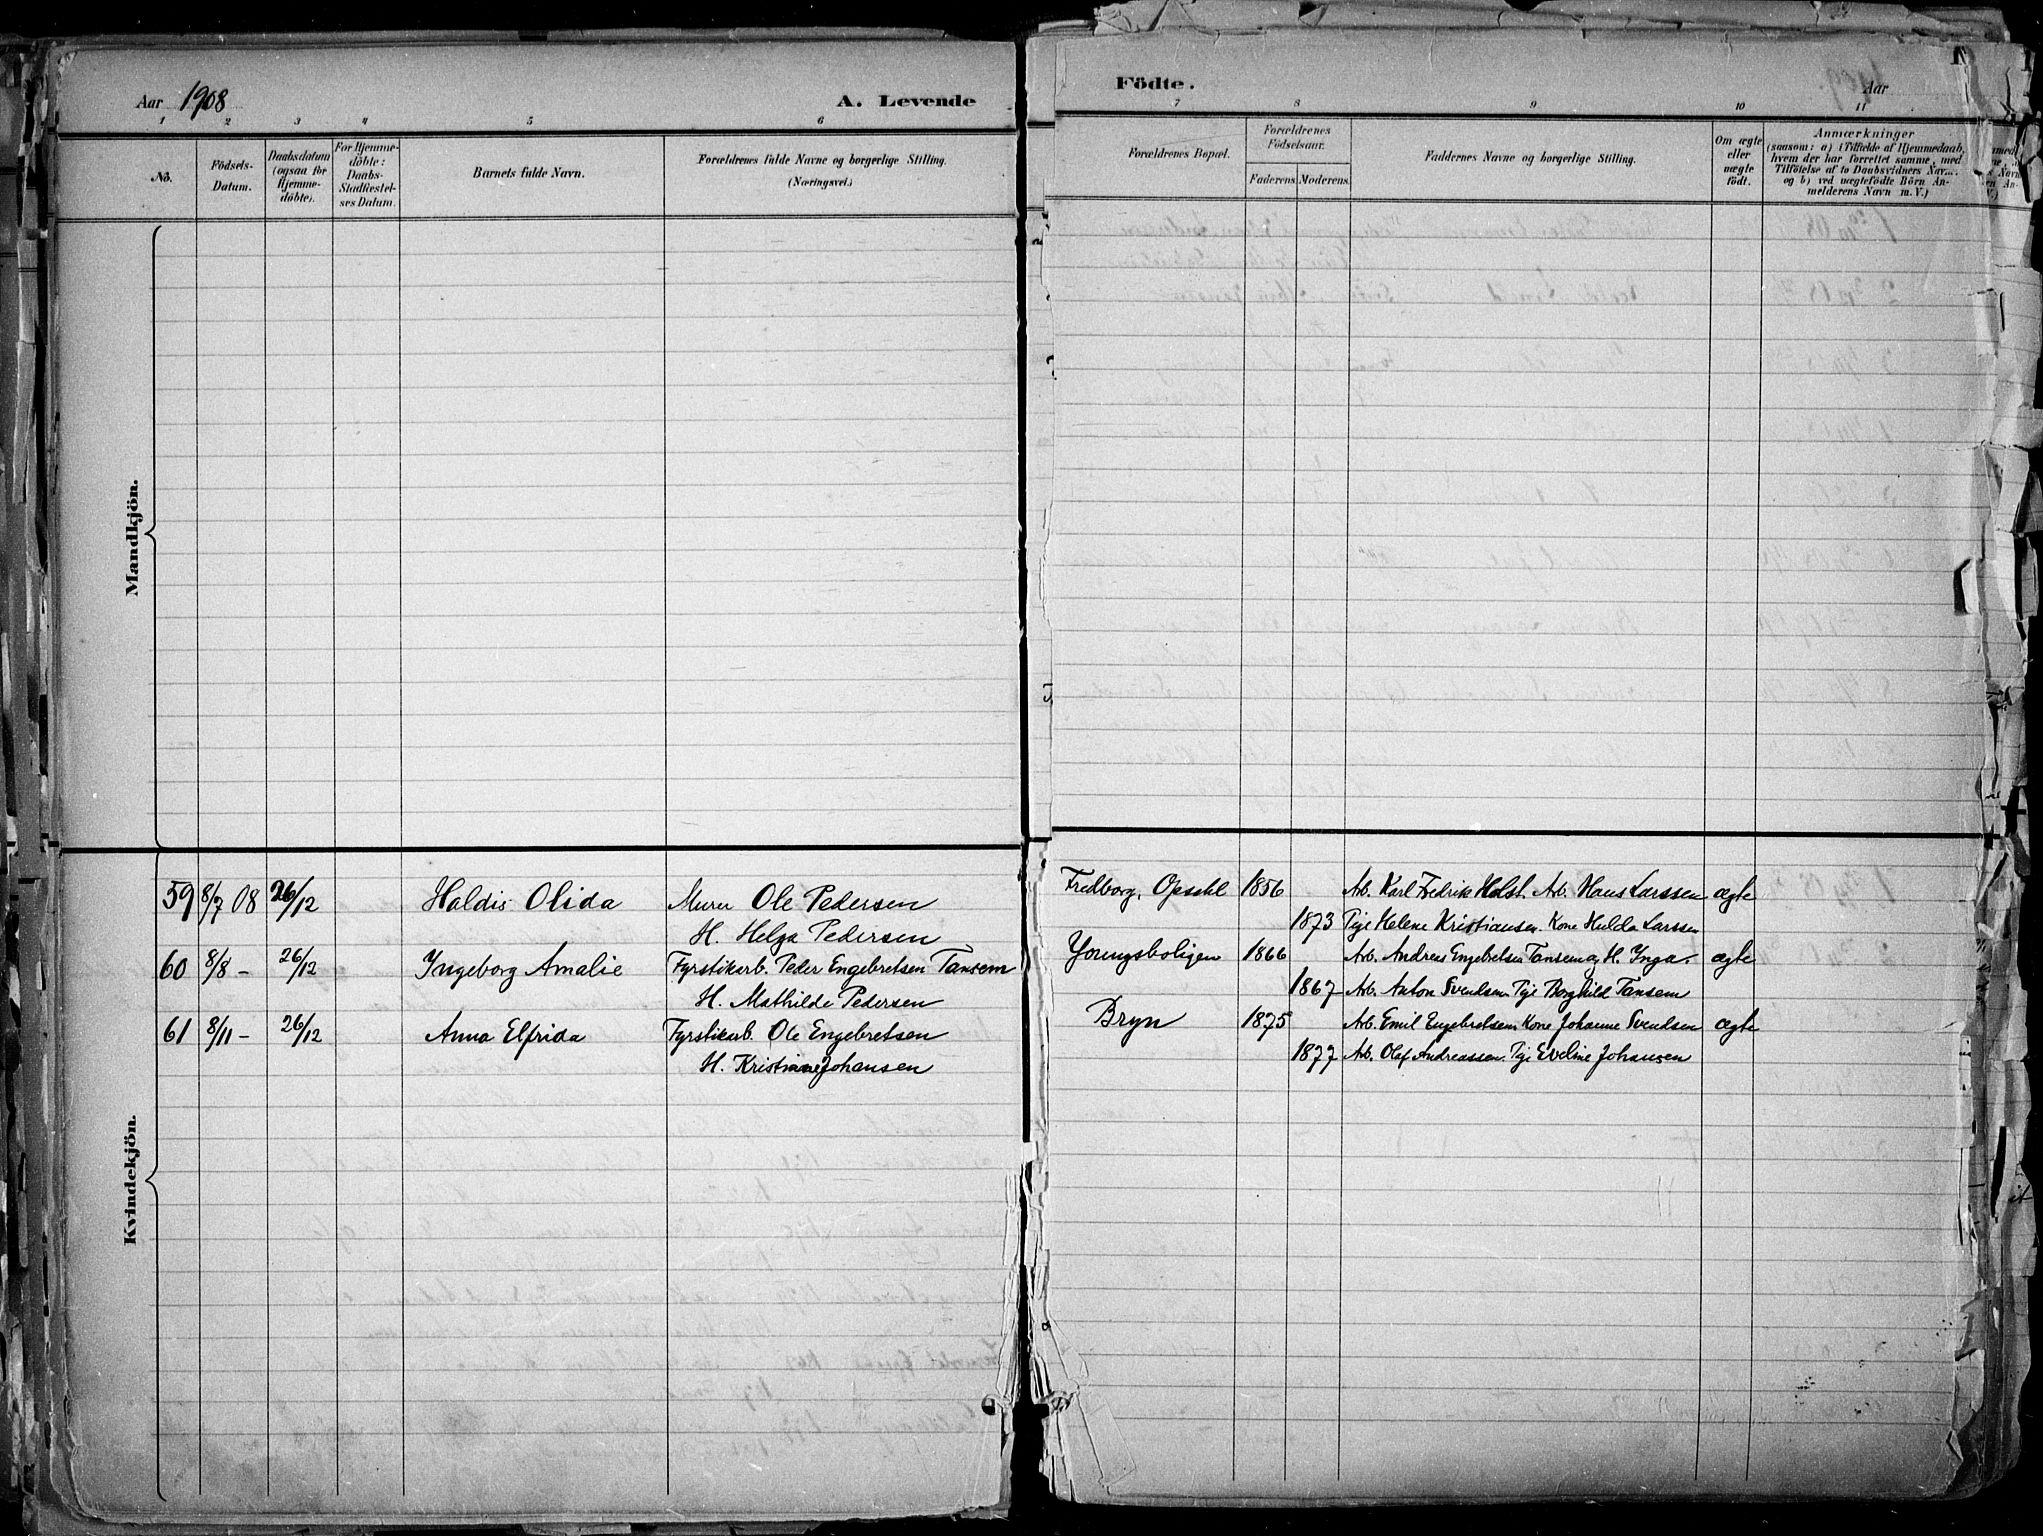 Aar 1908
A. Levende
Födte.
Aar
1 2 3 4 5 6 7 8 9 10 11
No.
Födsels-Datum.
Daabsdatum (ogsaa for Hjemme-döbte).
For Hjemme-döbte: Daabs-Stadfæstel-ses Datum.
Barnets fulde Navn.
Forældrenes fulde Navne og borgerlige Stilling.
(Næringsvei.)
Forældrenes Bopæl.
Forældrenes Födselsaar.
Faderens. Moderens.
Faddernes Navne og borgerlige Stilling.
Om ægte eller uægte födt.
Anmærkninger
(saasom: a) i Tilfælde af Hjemmedaab,
hvem der har forrettet samme, med
Tilföielse af to Daabsvidners Nav...
og b) ved uægtefödte Börn An-
melderens Navn m. V.)
Mandkjön.
Kvindekjön.
59 8/7 08 26/12 Haldis Olida Murer Ole Pedersen Fredborg, Opsahl 1856 Arb. Karl Fredrik Holst. Arb. Hans Larssen ægte
H. Helga Pedersen 1873 Pige Helene Kristiansen. Kone Hulda Larssen
60 8/8 - 26/12 Ingeborg Amalie Fyrstikarb. Peder Engebretsen Tansem Youngsboligen 1866 Arb. Andreas Engebretsen Tansem og H. Inga. ægte
H. Mathilde Pedersen 1867 Arb. Anton Svendsen. Pige Borghild Tansem
61 8/11 - 26/12 Anna Elfrida Fyrstikarb. Ole Engebretsen Bryn 1875 Arb. Emil Engebretsen Kone Johanne Svendsen ægte
H. Kristiane Johansen 1877 Arb. Olaf Andreassen. Pige Eveline Johansen